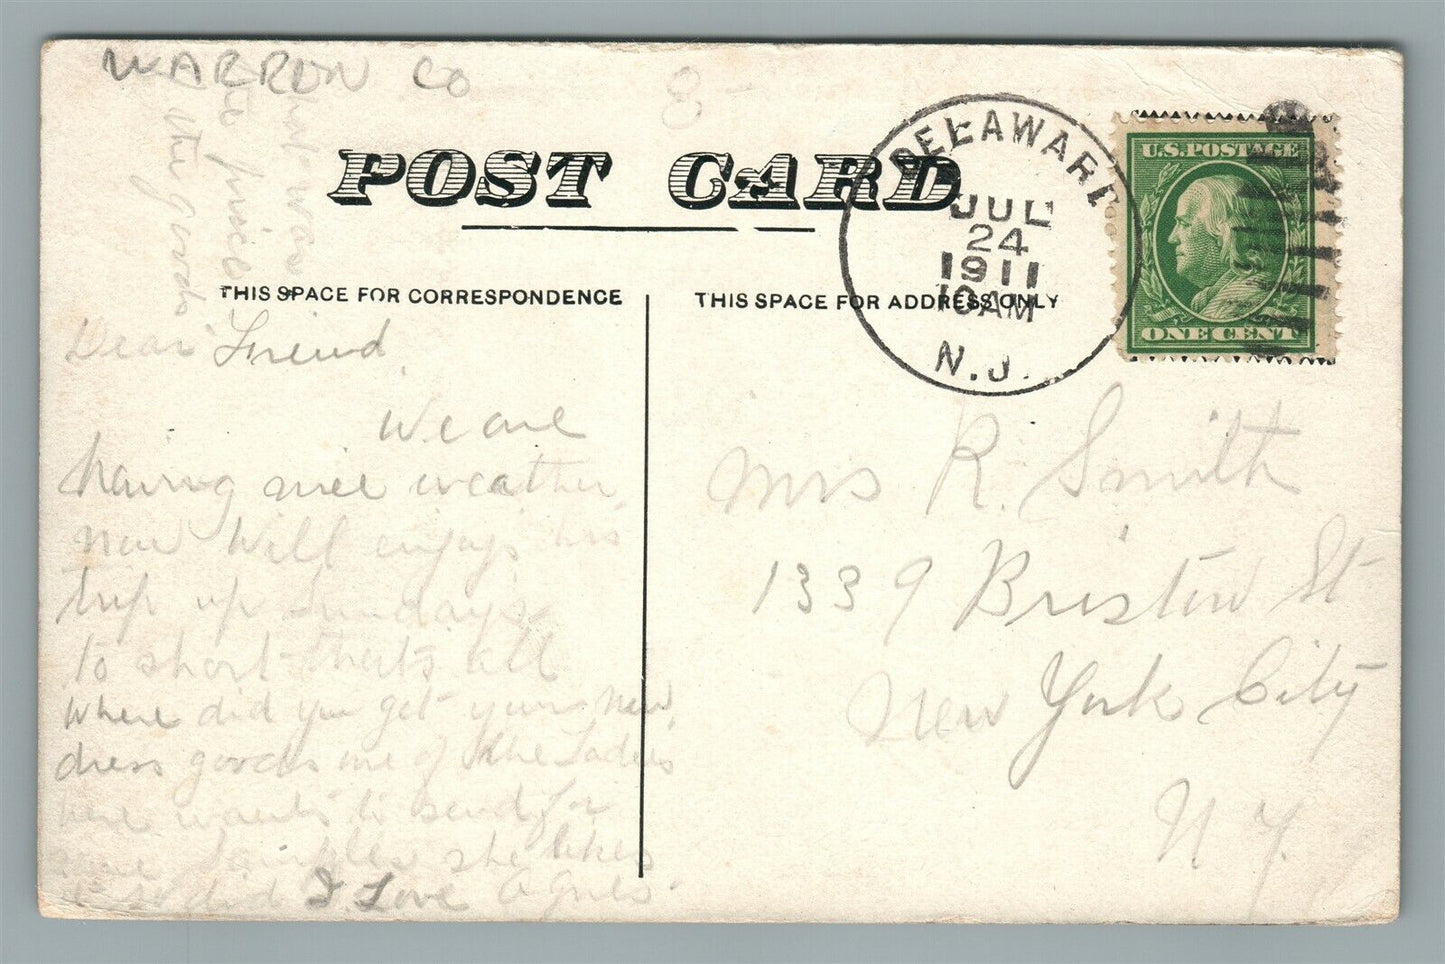 WARREN CO
what was
the price
of the goods
POST CARD
DELAWARE
JUL
24
1911
10AM
N.J.
U.S. POSTAGE
ONE CENT
THIS SPACE FOR CORRESPONDENCE
THIS SPACE FOR ADDRESS ONLY
Dear Friend
We are
having nice weather
now Will enjoys his
trip up Sundays
to short thats all
where did you get your new
dress goods one of the Ladies
here wants to send for
some samples she likes
it so did I Love Agnes
Mrs R. Smith
1339 Bristow St
New York City
N.Y.